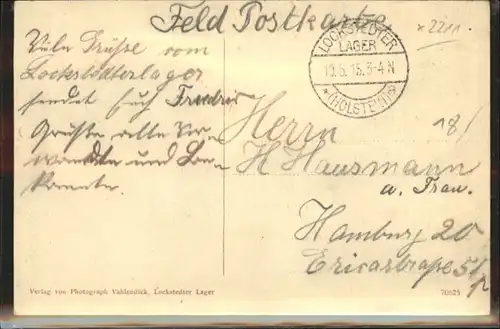 Feld Postkarte.
x2211
LOCKSTEDTER
LAGER
19.6.15.3-4N
* (HOLSTEIN) *
Viele Grüße vom
Lockstedterlager
sendet Euch
Grüße alle Ver-
wandte und Be-
kannte.
18/
Herrn
H Hausmann
u. Frau.
Hamburg 20
Ericastraße 51
Verlag von Photograph Vahlendick, Lockstedter Lager
70625